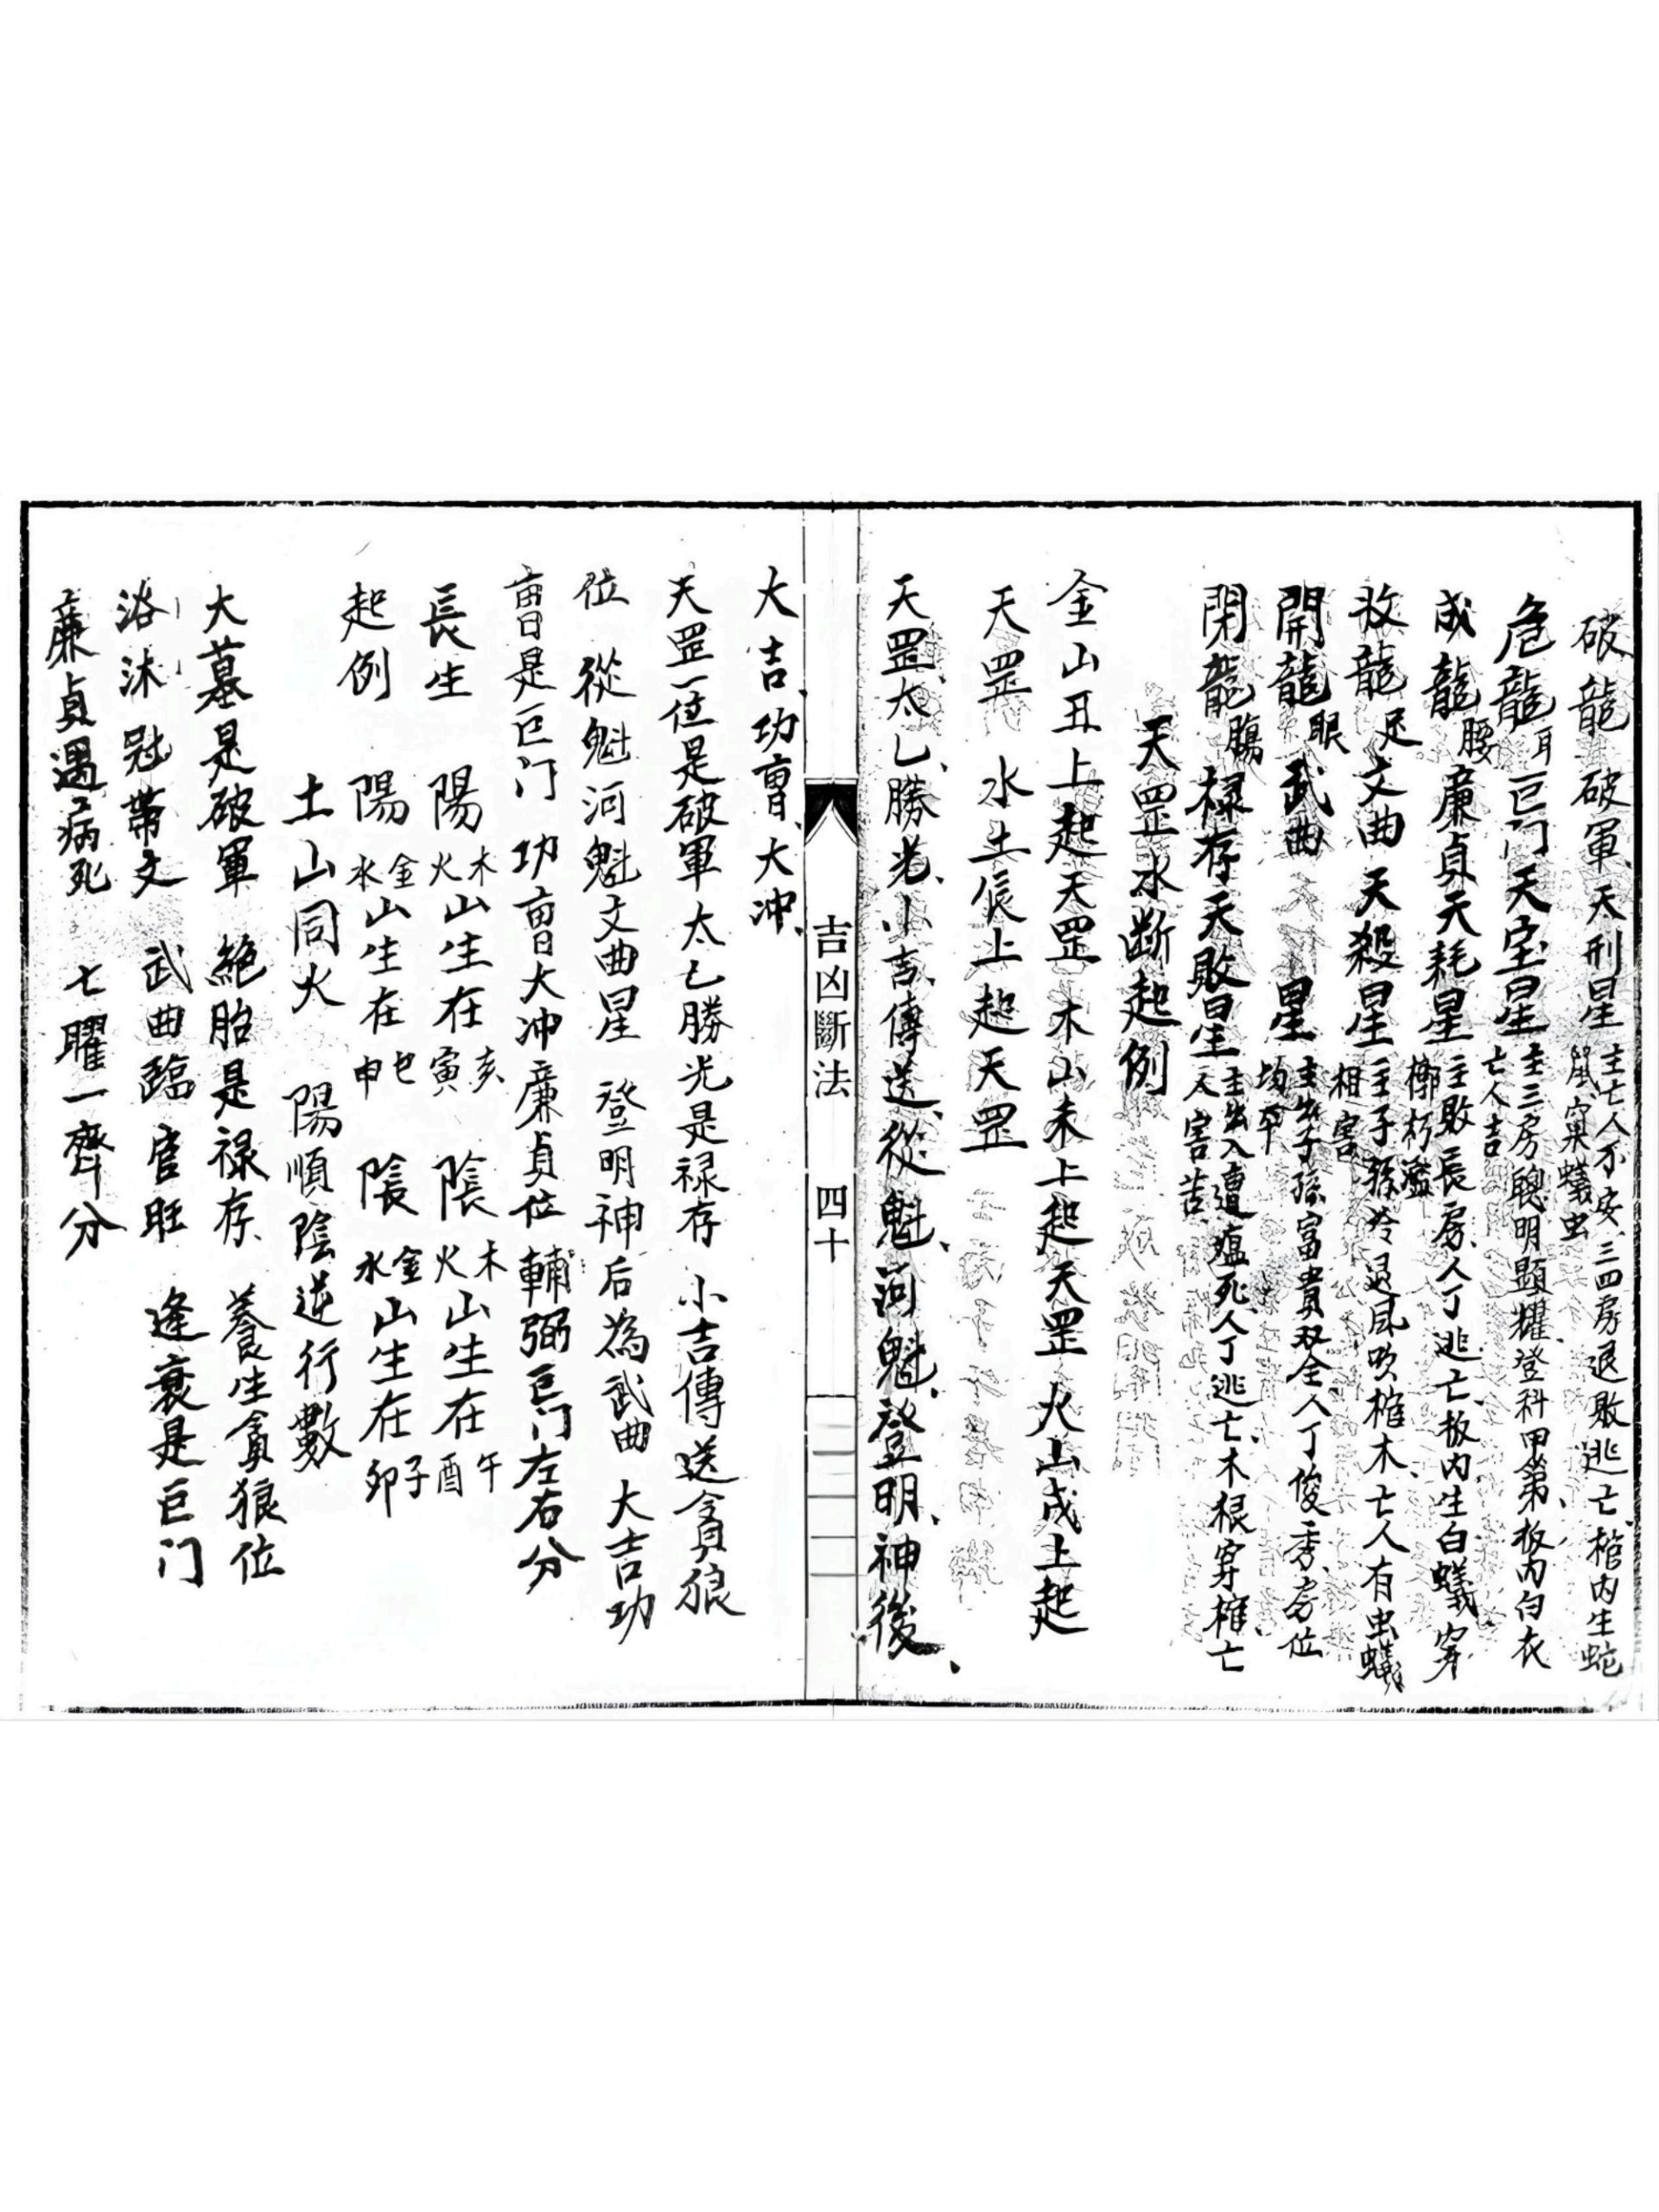 破龍 破軍天刑星 主亡人不安、三四房退敗逃亡、棺内生蛇鼠窠蟻虫
危龍耳 巨门天宝星 主三房聰明顯耀、登科甲第、板内白衣亡人吉
成龍腰 廉貞天耗星 主敗長房、人丁逃亡、板内生白蟻、穿槨朽濫
收龍足 文曲天殺星 主子孫冷退風吹棺木、亡人有虫蟻相害
開龍眼 武曲 星 主生子孫富貴双全人丁俊秀、房位均平
閉龍腸 禄存天敗星 主出入遭瘟死、人丁逃亡、木根穿棺、亡人害苦
天罡水断起例
金山丑上起天罡 木山未上起天罡 火山戌上起
天罡 水土辰上起天罡
天罡、太乙、勝光、小吉、傳送、從魁、河魁、登明、神後、
吉凶斷法 四十
大吉、功曹、大冲、
天罡一位是破軍 太乙勝光是禄存 小吉傳送貪狼
位 從魁河魁文曲星 登明神后為武曲 大吉功
曹是巨门 功曹大冲廉貞位 輔弼巨门左右分
長生 陽 木火山生在亥寅 陰 木火山生在午酉
起例 陽 金水山生在巳申 陰 金水山生在子卯
土山同火 陽順陰逆行數
大墓是破軍 絶胎是禄存、 養生貪狼位
浴沐冠帶文 武曲臨官旺 逢衰是巨门
廉貞遇病死 七曜一齊分